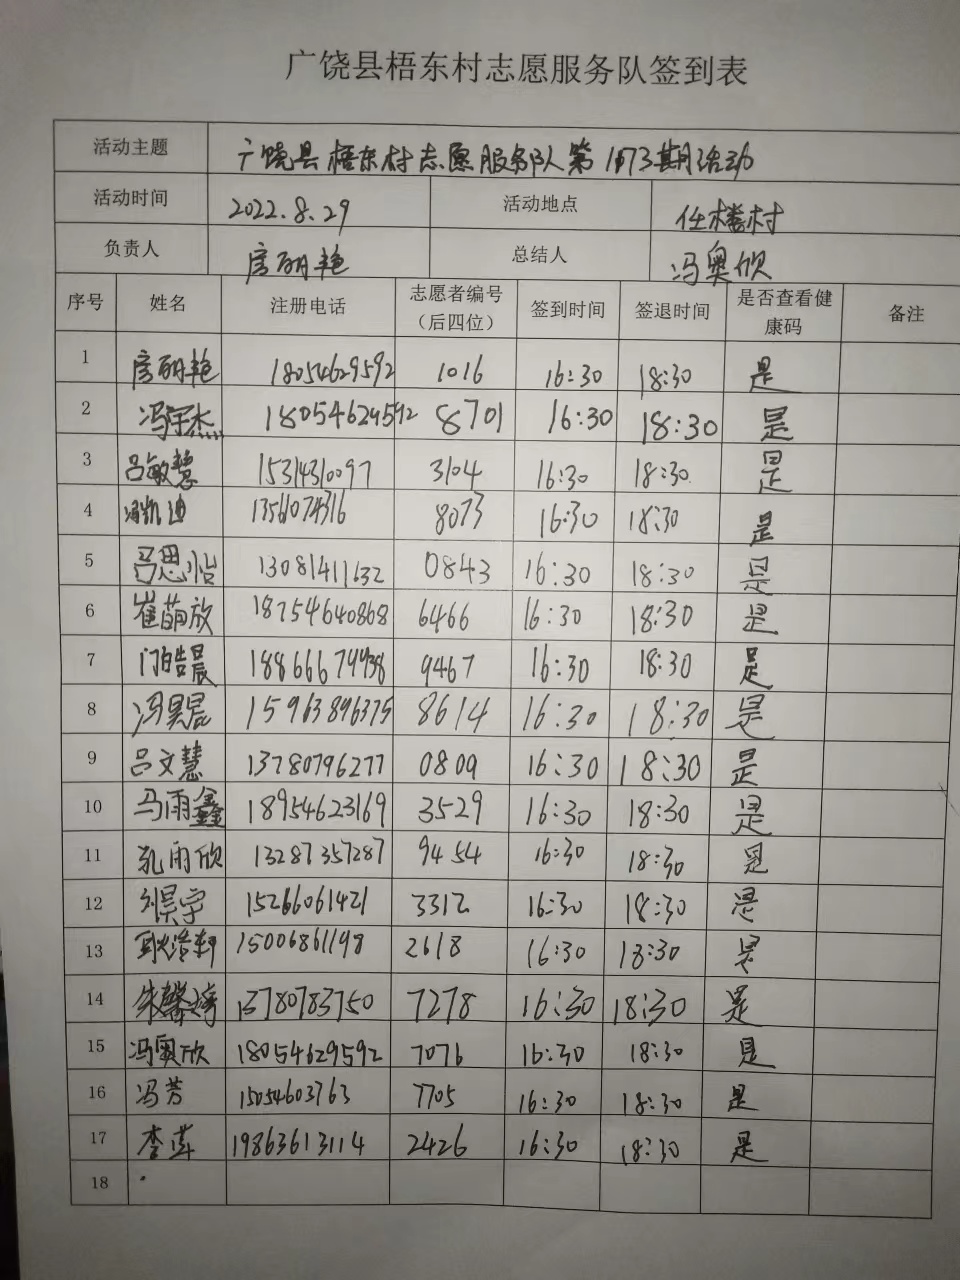 广饶县梧东村志愿服务队签到表
活动主题 广饶县梧东村志愿服务队第1073期活动
活动时间 2022.8.29 活动地点 任楼村
负责人 房丽艳 总结人 冯奥欣
序号 姓名 注册电话 志愿者编号（后四位） 签到时间 签退时间 是否查看健康码 备注
1 房丽艳 18054629592 1016 16:30 18:30 是
2 冯宇杰 18054629592 8701 16:30 18:30 是
3 吕敏慧 15314310097 3104 16:30 18:30 是
4 冯凯迪 8073 16:30 18:30 是
5 吕思怡 13081411632 0843 16:30 18:30 是
6 崔萌放 18754640868 6466 16:30 18:30 是
7 门皓晨 18866679938 9467 16:30 18:30 是
8 冯昊辰 15963896375 8614 16:30 18:30 是
9 吕文慧 13780796277 0809 16:30 18:30 是
10 马雨鑫 18954623169 3529 16:30 18:30 是
11 孔雨欣 13287357287 9454 16:30 18:30 是
12 刘昊宇 15266061421 3312 16:30 18:30 是
13 耿浩轩 15006861198 2618 16:30 18:30 是
14 朱馨 13780783750 7278 16:30 18:30 是
15 冯奥欣 18054629592 7076 16:30 18:30 是
16 冯芳 15054603763 7705 16:30 18:30 是
17 李萍 19863613114 2426 16:30 18:30 是
18